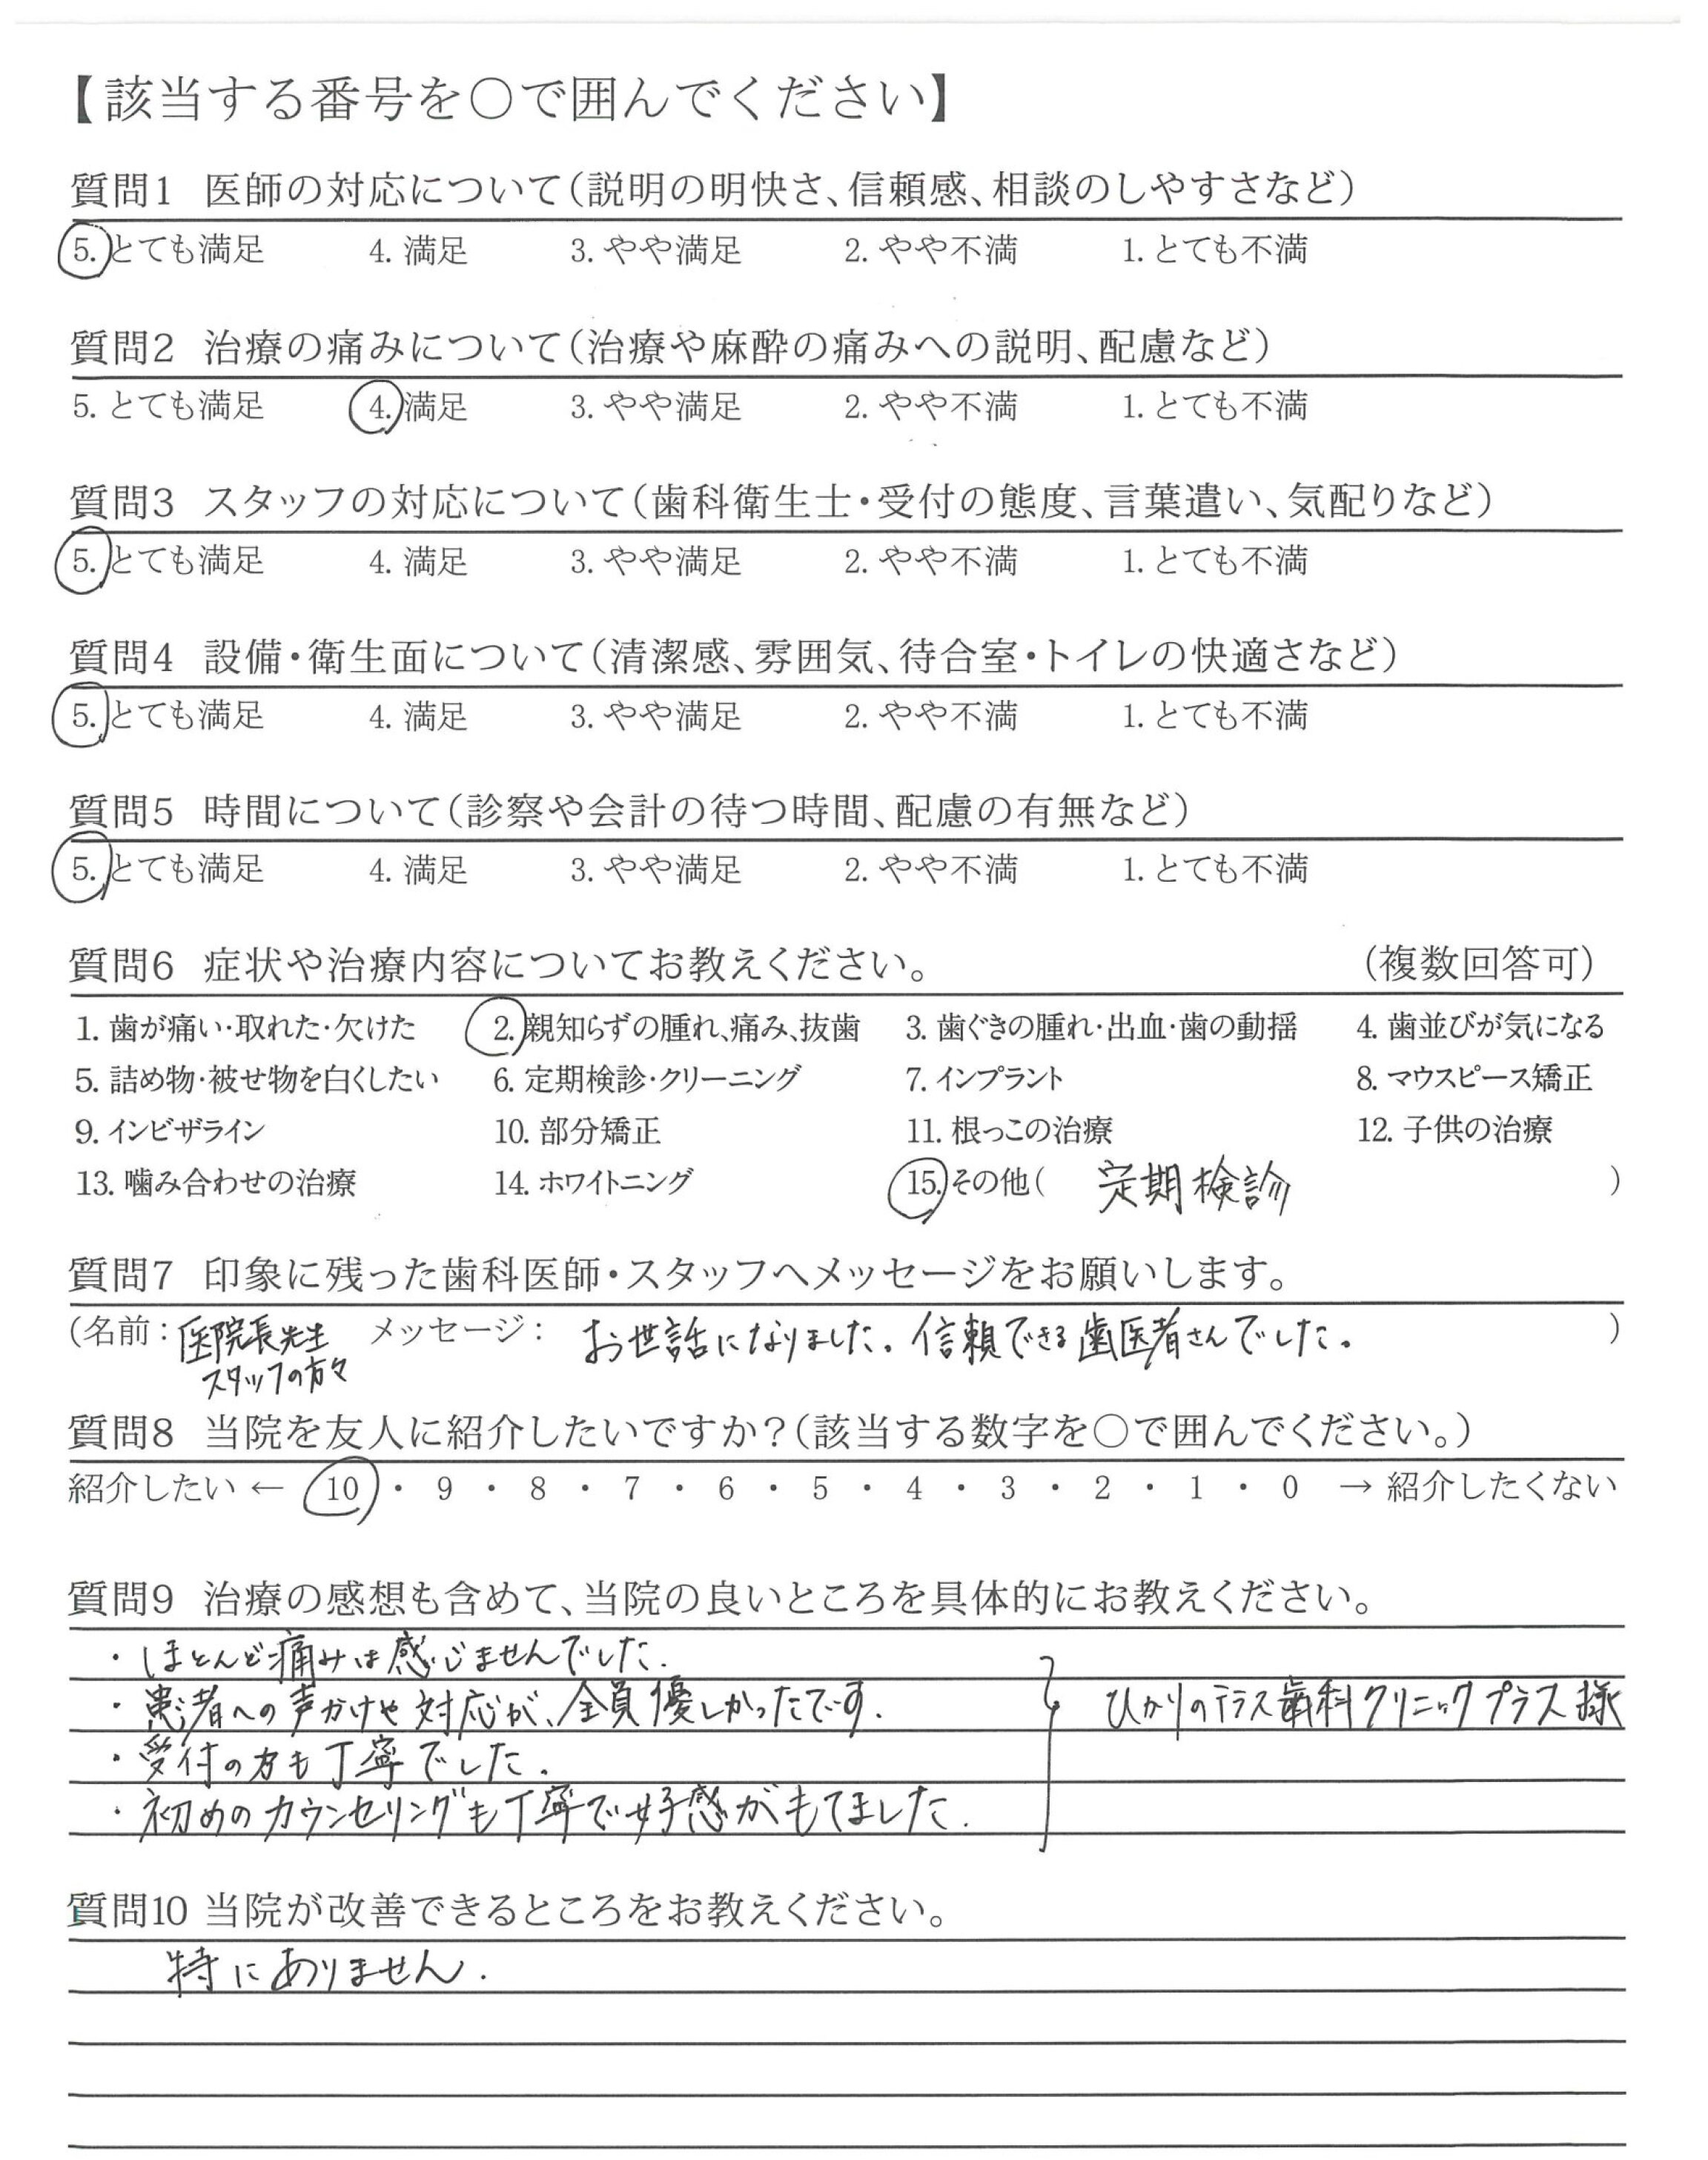 【該当する番号を○で囲んでください】
質問1 医師の対応について(説明の明快さ、信頼感、相談のしやすさなど)
5. とても満足 4. 満足 3. やや満足 2. やや不満 1. とても不満
質問2 治療の痛みについて(治療や麻酔の痛みへの説明、配慮など)
5. とても満足 4. 満足 3. やや満足 2. やや不満 1. とても不満
質問3 スタッフの対応について(歯科衛生士・受付の態度、言葉遣い、気配りなど)
5. とても満足 4. 満足 3. やや満足 2. やや不満 1. とても不満
質問4 設備・衛生面について(清潔感、雰囲気、待合室・トイレの快適さなど)
5. とても満足 4. 満足 3. やや満足 2. やや不満 1. とても不満
質問5 時間について(診察や会計の待つ時間、配慮の有無など)
5. とても満足 4. 満足 3. やや満足 2. やや不満 1. とても不満
質問6 症状や治療内容についてお教えください。 (複数回答可)
1. 歯が痛い・取れた・欠けた 2. 親知らずの腫れ、痛み、抜歯 3. 歯ぐきの腫れ・出血・歯の動揺 4. 歯並びが気になる
5. 詰め物・被せ物を白くしたい 6. 定期検診・クリーニング 7. インプラント 8. マウスピース矯正
9. インビザライン 10. 部分矯正 11. 根っこの治療 12. 子供の治療
13. 噛み合わせの治療 14. ホワイトニング 15. その他( 定期検診 )
質問7 印象に残った歯科医師・スタッフへメッセージをお願いします。
(名前: 医院長先生 メッセージ: お世話になりました。信頼できる歯医者さんでした。 )
スタッフの方々
質問8 当院を友人に紹介したいですか?(該当する数字を○で囲んでください。)
紹介したい ← 10 ・ 9 ・ 8 ・ 7 ・ 6 ・ 5 ・ 4 ・ 3 ・ 2 ・ 1 ・ 0 → 紹介したくない
質問9 治療の感想も含めて、当院の良いところを具体的にお教えください。
・ほとんど痛みは感じませんでした.
・患者への声かけや対応が、全員優しかったです. ひかりのテラス歯科クリニックプラス様
・受付の方も丁寧でした.
・初めのカウンセリングも丁寧で好感がもてました.
質問10 当院が改善できるところをお教えください。
特にありません.